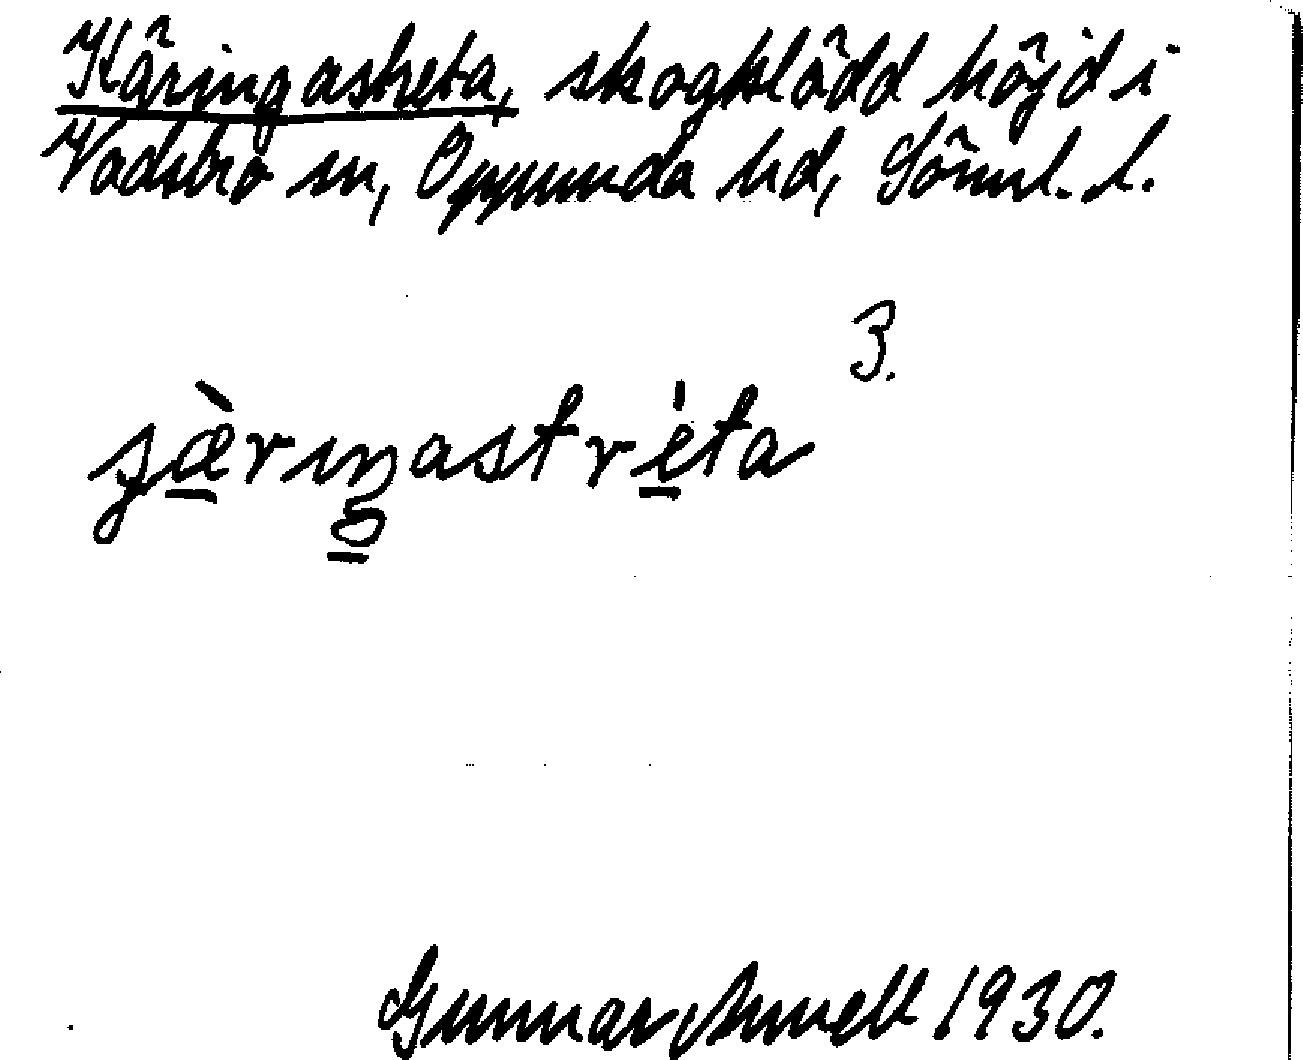 Käringastreta, skogklädd höjd i
Vadsbro sn, Oppunda hd, Sörml. l.
3.
ȷæ̀rıŋastréta
Gunnar 1930.